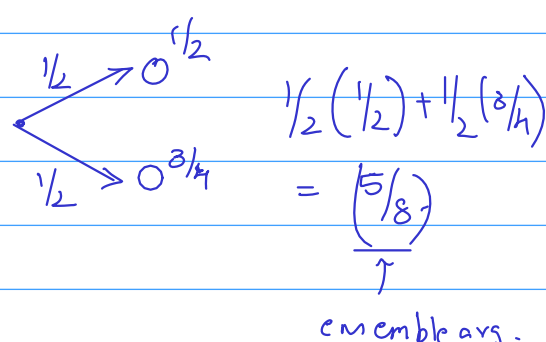 1/2
1/2
1/2 (1/2) + 1/2 (3/4)
1/2
3/4
= (5/8).
↑
ensemble avg.